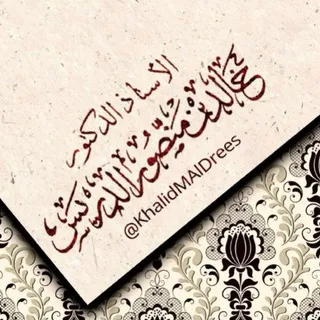 الأستاذ الدكتور
خالد بن منصور الدريس
@KhalidMAlDrees